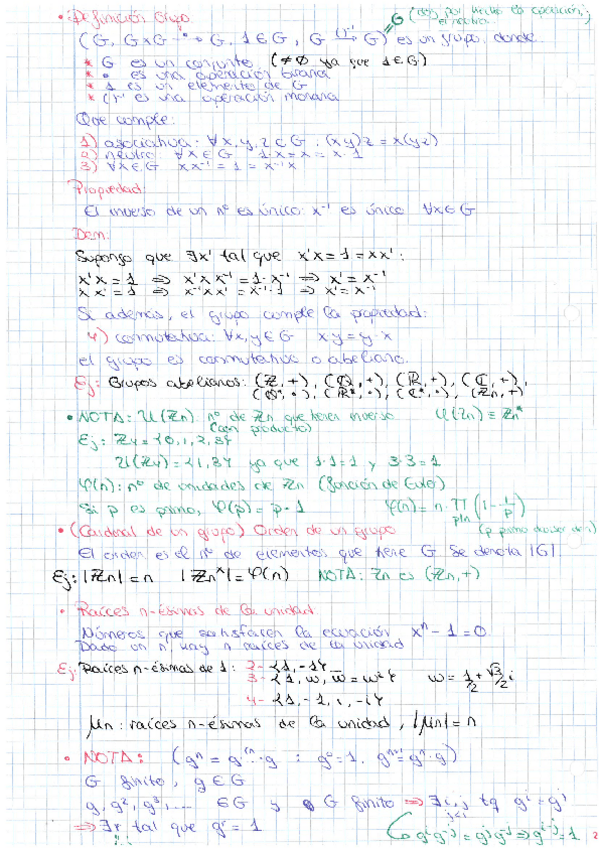 • Definición Grupo
(G, G×G → G, 1∈G, G → G) es un grupo, donde
* G es un conjunto (≠∅ ya que 1∈G)
* · es una operación binaria
* 1 es un elemento de G
* ( )⁻¹ es una operación monaria
Que cumple:
1) asociativa: ∀x,y,z∈G (xy)z = x(yz)
2) neutro: ∀x∈G 1·x = x = x·1
3) ∀x∈G xx⁻¹ = 1 = x⁻¹x
Propiedad:
El inverso de un nº es único: x⁻¹ es único ∀x∈G
Dem:
Supongo que ∃x' tal que x'x = 1 = xx':
x'x = 1 ⇒ x'xx⁻¹ = 1·x⁻¹ ⇒ x' = x⁻¹
xx' = 1 ⇒ x⁻¹xx' = x⁻¹·1 ⇒ x' = x⁻¹
Si además, el grupo cumple la propiedad:
4) conmutativa: ∀x,y∈G x·y = y·x
el grupo es conmutativo o abeliano.
Ej: Grupos abelianos: (ℤ,+), (ℚ,+), (ℝ,+), (ℂ,+),
(ℚ*,·), (ℝ*,·), (ℂ*,·), (ℤn,+)
• NOTA: U(ℤn) nº de ℤn que tienen inverso U(ℤn) ≡ ℤn*
(con producto)
Ej: ℤ4 = {0,1,2,3}
U(ℤ4) = {1,3} ya que 1·1=1 y 3·3=1
φ(n): nº de unidades de ℤn (función de Euler)
Si p es primo, φ(p) = p-1 φ(n) = n·∏ p|n (1 - 1/p)
(p primo divisor de n)
• (Cardinal de un grupo) Orden de un grupo
El orden es el nº de elementos que tiene G. Se denota |G|.
Ej: |ℤn| = n |ℤn*| = φ(n) NOTA: ℤn es (ℤn,+)
• Raíces n-ésimas de la unidad
Números que satisfacen la ecuación xⁿ - 1 = 0
Dado un n, hay n raíces de la unidad
Ej: Raíces n-ésimas de 1: 2- {1,-1}
3- {1, w, w̄ = w²} w = 1/2 + √3/2 i
4- {1,-1,i,-i}
μn: raíces n-ésimas de la unidad, |μn| = n
• NOTA: (gⁿ = gⁿ⁻¹·g ; g⁰ = 1, gⁿ⁺¹ = gⁿ·g)
G finito, g∈G
g, g², g³, ... ∈G y G finito ⇒ ∃i,j tq gⁱ = gʲ
j<i
⇒ ∃r tal que gʳ = 1
gⁱg⁻ʲ = gʲg⁻ʲ ⇒ gⁱ⁻ʲ = 1
2